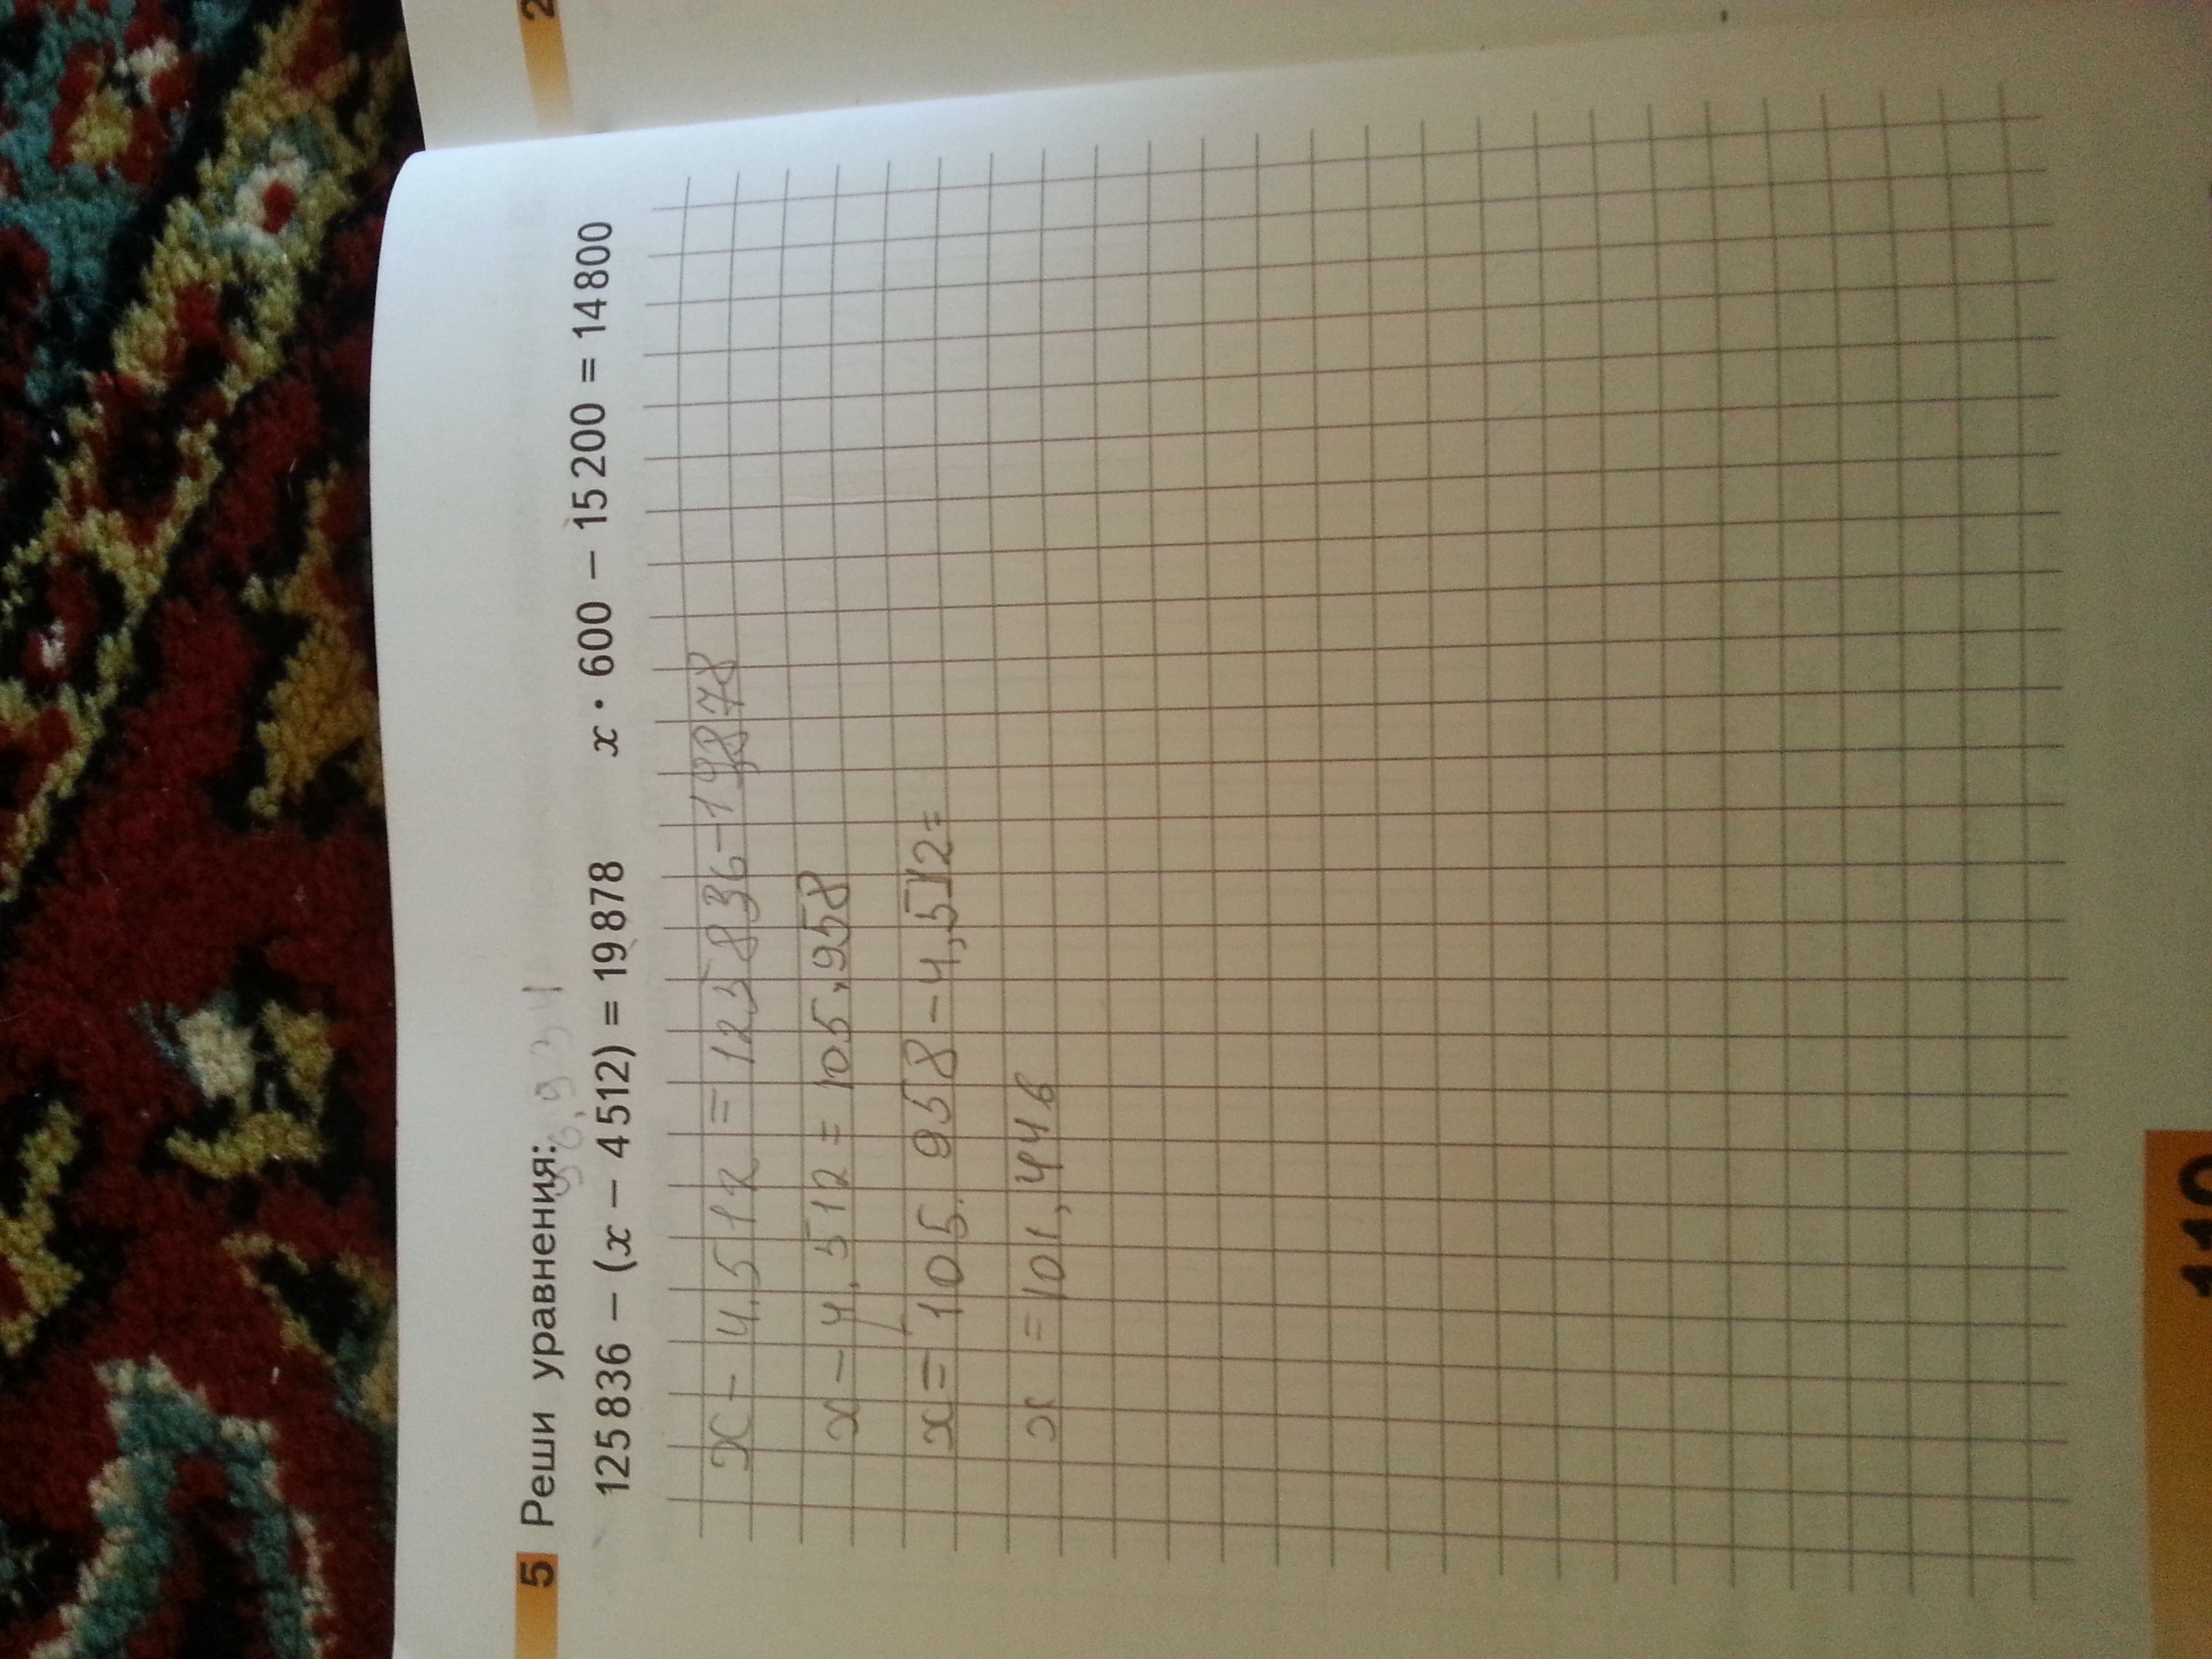 5 Реши уравнения:
125 836 – (x – 4 512) = 19 878 x · 600 – 15 200 = 14 800
x - 4,512 = 125836-19878
x - 4.512 = 105,958
x = 105.958 - 4,512 =
x = 101,446
110
2